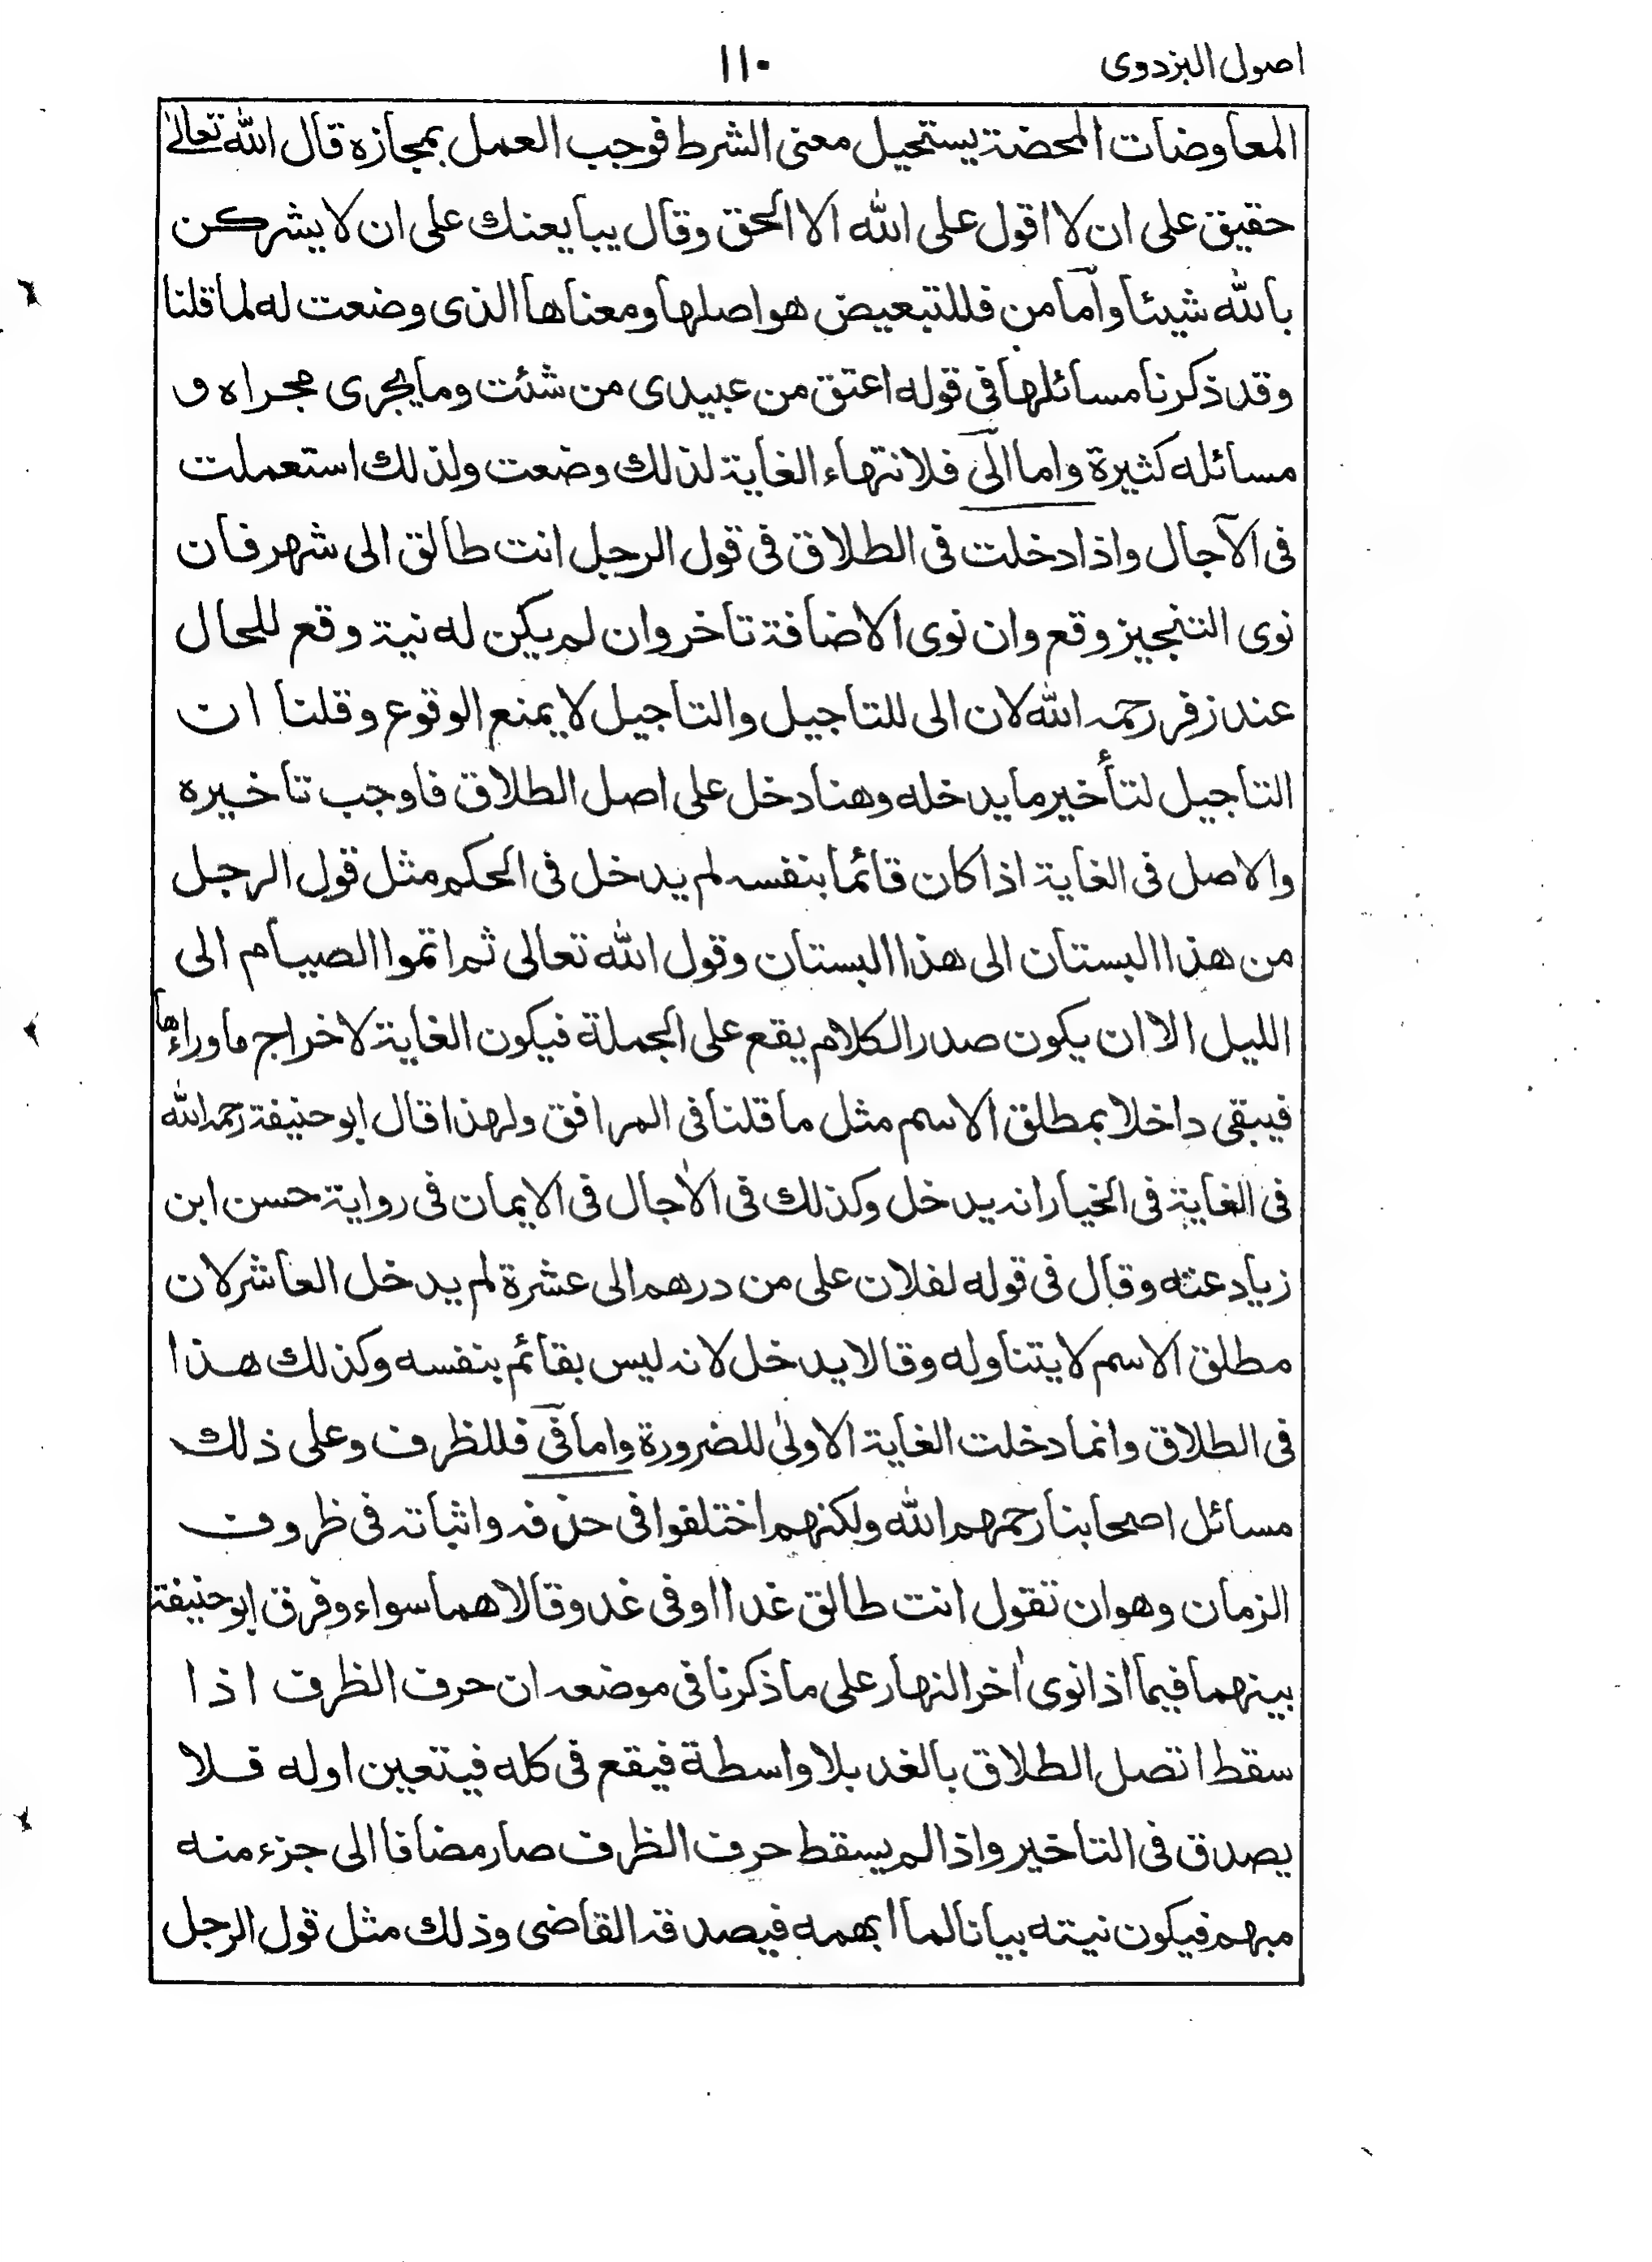 اصول البزدوى ١١٠
المعاوضات المحضة يستحيل معنى الشرط فوجب العمل بمجازه قال الله تعالى
حقيق على ان لا اقول على الله الا الحق وقال يبايعنك على ان لا يشركن
بالله شيئا واما من فللتبعيض هو اصلها ومعناها الذى وضعت له لما قلنا
وقد ذكرنا مسائلها فى قوله اعتق من عبيدى من شئت وما يجرى مجراه و
مسائله كثيرة واما الى فلانتهاء الغاية لذلك وضعت ولذلك استعملت
فى الآجال واذا دخلت فى الطلاق فى قول الرجل انت طالق الى شهر فان
نوى التنجيز وقع وان نوى الاضافة تاخر وان لم يكن له نية وقع للحال
عند زفر رحمه الله لان الى للتاجيل والتاجيل لا يمنع الوقوع وقلنا ان
التاجيل لتأخير ما يدخله وهنا دخل على اصل الطلاق فاوجب تاخيره
والاصل فى الغاية اذا كان قائما بنفسه لم يدخل فى الحكم مثل قول الرجل
من هذا البستان الى هذا البستان وقول الله تعالى ثم اتموا الصيام الى
الليل الا ان يكون صدر الكلام يقع على الجملة فيكون الغاية لاخراج ما وراءها
فيبقى داخلا بمطلق الاسم مثل ما قلنا فى المرافق ولهذا قال ابو حنيفة رحمه الله
فى الغاية فى الخيار انه يدخل وكذلك فى الآجال فى الايمان فى رواية حسن ابن
زياد عنه وقال فى قوله لفلان على من درهم الى عشرة لم يدخل العاشر لان
مطلق الاسم لا يتناوله وقالا يدخل لانه ليس بقائم بنفسه وكذلك هذا
فى الطلاق وانما دخلت الغاية الاولى للضرورة واما فى فللظرف وعلى ذلك
مسائل اصحابنا رحمهم الله ولكنهم اختلفوا فى حذفه واثباته فى ظروف
الزمان وهو ان تقول انت طالق غدا او فى غد وقالا هما سواء وفرق ابو حنيفة
بينهما فيما اذا نوى اٰخر النهار على ما ذكرنا فى موضعه ان حرف الظرف اذا
سقط اتصل الطلاق بالغد بلا واسطة فيقع فى كله فيتعين اوله فلا
يصدق فى التاخير واذا لم يسقط حرف الظرف صار مضافا الى جزء منه
مبهم فيكون نيته بيانا لما ابهمه فيصدقه القاضى وذلك مثل قول الرجل